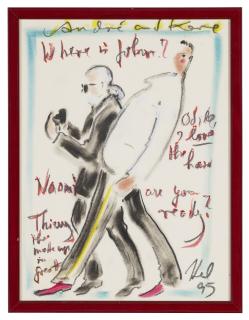 André and Karl
Where is John?
Odile,
I love
the hair
Naomi
are you
ready?
Thierry
the make up
is great
95